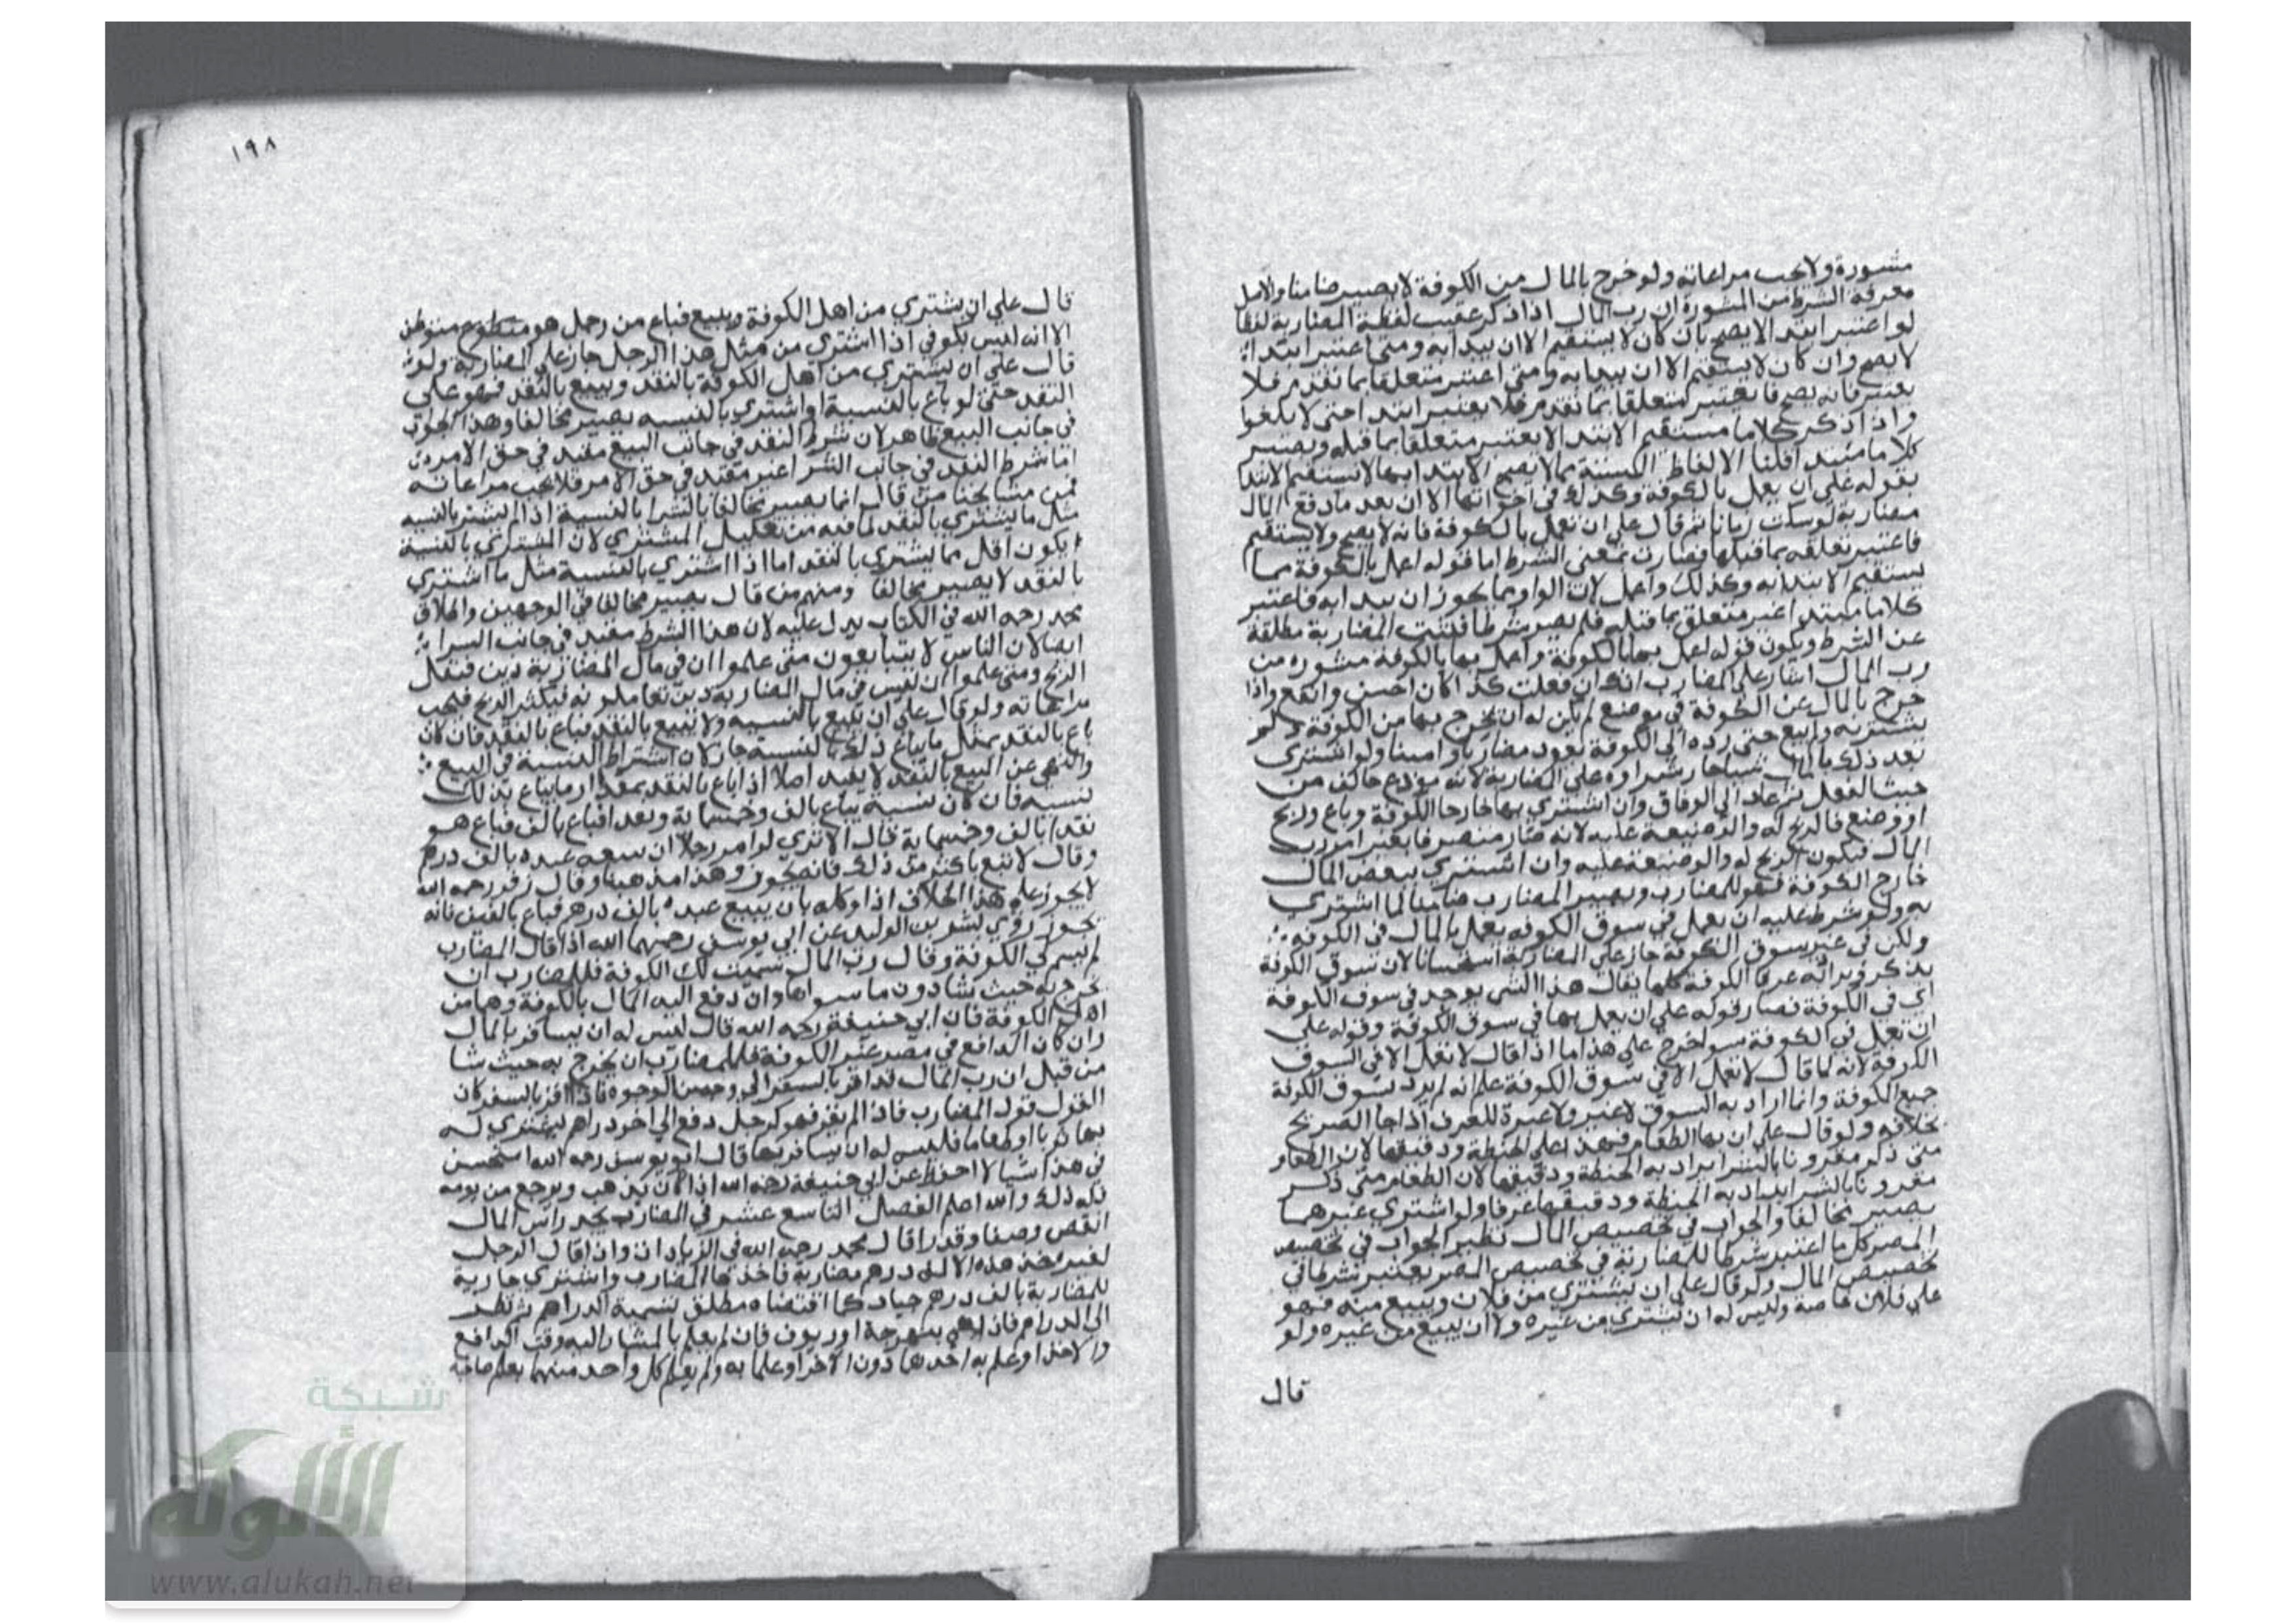 مشورة ولا يجب مراعاته ولو خرج بالمال من الكوفة لا يصير ضامنا والاصل
معرفة الشرط من المشورة ان رب المال اذا ذكر عقيب لفظة المضاربة لفظا
لو اعتبر ابتدا لا يصح بان كان لا يستقيم الا ان يبدا به ومتى اعتبر ابتدا
لا يصح وان كان لا يستقيم الا ان يبدا به ومتى اعتبر متعلقا بما تقدم فلا
يعتبر فانه يصح فانه يعتبر متعلقا بما تقدم فلا يعتبر ابتدا حتى لا يلغوا
واذا ذكر كلاما مستقيم الابتدا لا يعتبر متعلقا بما قبله ويعتبر
كلاما مبتدا قلنا الالفاظ الستة مما لا يصح الابتدا بها لا يستقيم الابتدا
بقوله على ان يعمل بالكوفة وكذلك في اخواتها الا ان بعد ما دفع المال
مضاربة لو سكت زمانا ثم قال على ان تعمل بالكوفة فانه لا يصح ولا يستقيم
فاعتبر تعلقه بما قبلها فصارت بمعنى الشرط اما قوله اعمل بالكوفة مما
يستقيم الابتدا به وكذلك واعمل لان الواو مما يجوز ان يبدا به فاعتبر
كلاما مبتدا غير متعلق بما قبله فلم يصر شرطا فبقيت المضاربة مطلقة
عن الشرط ويكون قوله اعمل بها بالكوفة واعمل بها بالكوفة مشورة من
رب المال اشار على المضارب انك ان فعلت كذا كان احسن وانفع واذا
خرج بالمال عن الكوفة في موضع لم يكن له ان يخرج بها من الكوفة ولم
يشتر به ولم يبع حتى رده الى الكوفة يعود مضاربا وامينا ولو اشترى
بعد ذلك بالمال شيا صار شراوه على المضاربة لانه مودع خالف من
حيث الفعل ثم عاد الى الوفاق وان اشترى بها خارجا الكوفة وباع وربح
او وضع فالربح له والوضيعة عليه لانه صار متصرفا بغير امر رب
المال فيكون الربح له والوضيعة عليه وان اشترى ببعض المال
خارج الكوفة فهو للمضارب ويصير المضارب ضامنا لما اشترى
به ولو شرط عليه ان يعمل في سوق الكوفة يعمل بالمال في الكوفة
ولكن في غير سوق الكوفة جاز على المضاربة استحسانا لان سوق الكوفة
يذكر ويراد به عرفا الكوفة كلها يقال هذا الشي يوجد في سوق الكوفة
اي في الكوفة فصار قوله على ان يعمل بها في سوق الكوفة وقوله على
ان تعمل في الكوفة سوا خرج على هذا اما اذا قال لا تعمل الا في السوق
الكوفة لانه لما قال لا تعمل الا في سوق الكوفة علم انه لم يرد بسوق الكوفة
جميع الكوفة وانما اراد به السوق لا غير ولا عبرة للعرف اذا جا الصريح
بخلافه ولو قال على ان بها الطعام فهذا على الحنطة ودقيقها لان الطعام
متى ذكر مقرونا بالشرا يراد به الحنطة ودقيقها لان الطعام متى ذكر
مقرونا بالشرا يراد به الحنطة ودقيقها عرفا ولو اشترى غيرهما
يصير مخالفا والجواب في تخصيص المال نظير الجواب في تخصيص
المصر كل ما اعتبر شرطا للمضاربة في تخصيص المصر يعتبر شرطا في
تخصيص المال ولو قال على ان يشتري من فلان ويبيع منه فهو
على فلان خاصة وليس له ان يشتري من غيره ولا ان يبيع من غيره ولو
قال
١٩٨
قال على ان يشتري من اهل الكوفة ويبيع فباع من رجل هو متوطن
الا انه ليس بكوفي اذا اشترى من مثل هذا الرجل جاز على المضاربة ولو
قال على ان يشتري من اهل الكوفة بالنقد ويبيع بالنقد فهو على
النقد حتى لو باع بالنسية او اشترى بالنسيه يصير مخالفا وهذا الجواب
في جانب البيع ظاهر لان شرط النقد في جانب البيع مفيد في حق الامر
اما شرط النقد في جانب الشرا غير مفيد في حق الامر فلا يجب مراعاته
فمن مشايخنا من قال انما يصير مخالفا بالشرا بالنسية اذا اشترى بالنسيه
مثل ما يشتري بالنقد لما فيه من تقليل المشتري لان المشترى بالنسية
يكون اقل مما يشتري بالنقد اما اذا اشترى بالنسية مثل ما اشترى
بالنقد لا يصير مخالفا ومنهم من قال يصير مخالفا في الوجهين واطلاق
محمد رحمه الله في الكتاب يدل عليه لان هذا الشرط مفيد في جانب الشرا
ايضا لان الناس لا يتبايعون متى علموا ان في مال المضاربة دين فيقل
الربح ومتى علموا ان ليس في مال المضاربة دين تعاملونه فيكثر الربح فيجب
مراعاته ولو قال على ان تبيع بالنسيه ولا تبيع بالنقد فباع بالنقد فان كان
باع بالنقد بمثل ما يباع ذلك بالنسية جاز لان اشتراط النسية في البيع
والنهي عن البيع بالنقد لا يفيد اصلا اذا باع بالنقد بمقدار ما يباع بذلك
لنسيه فان كان نسية يباع بالف وخمسماية ونقدا فباع بالف فباع هو
نقدا بالف وخمسماية قال الا ترى لو امر رجلا ان يبيع عبده بالف درهم
وقال لا تبع باكثر من ذلك فانه يجوز وهذا مذهبنا وقال زفر رحمه الله
لا يجوز على هذا الخلاف اذا وكله بان يبيع عبده بالف درهم فباع بالفين فانه
يجوز روى بشر بن الوليد عن ابي يوسف رحمهما الله اذا قال المضارب
لم يسم لي الكوفة وقال رب المال سميت لك الكوفة فللمضارب ان
يخرج به حيث شا دون ما سواها وان دفع اليه المال بالكوفة وهما من
اهل الكوفة فان ابي حنيفة رحمه الله قال ليس له ان يسافر بالمال
وان كان الدافع في مصر غير الكوفة فللمضارب ان يخرج به حيث شا
من قبل ان رب المال قد اقر بالسفر الوجوه فاذا اقر بالسفر كان
القول قول المضارب فاذا لم يقر فهو كرجل دفع الى اخر دراهم ليشتري له
بها او طعاما فليس له ان يسافر بها قال ابو يوسف رحمه الله استحسن
في هذا اشيا لا احفظ عن ابي حنيفة رحمه الله اذا كان يذهب ويرجع من يومه
فله ذلك والله اعلم الفصل التاسع عشر في المضارب يجد راس المال
انقص وصفا وقدرا قال محمد رحمه الله في الزيادات واذا قال الرجل
لغيره خذ هذه الالف درهم مضاربة فاخذها المضارب واشترى جارية
للمضاربة بالف درهم جياد كما اقتضاه مطلق تسمية الدراهم ثم نظر
الى الدراهم فاذا هي بنهرجة او زيوف فان لم يعلم بالمشار اليه وقت الدافع
والاخذ او علم به احدهما دون الاخر او علما به ولم يعلم كل واحد منهما بعلم صاحبه
شبكة
الألوكة
www.alukah.net